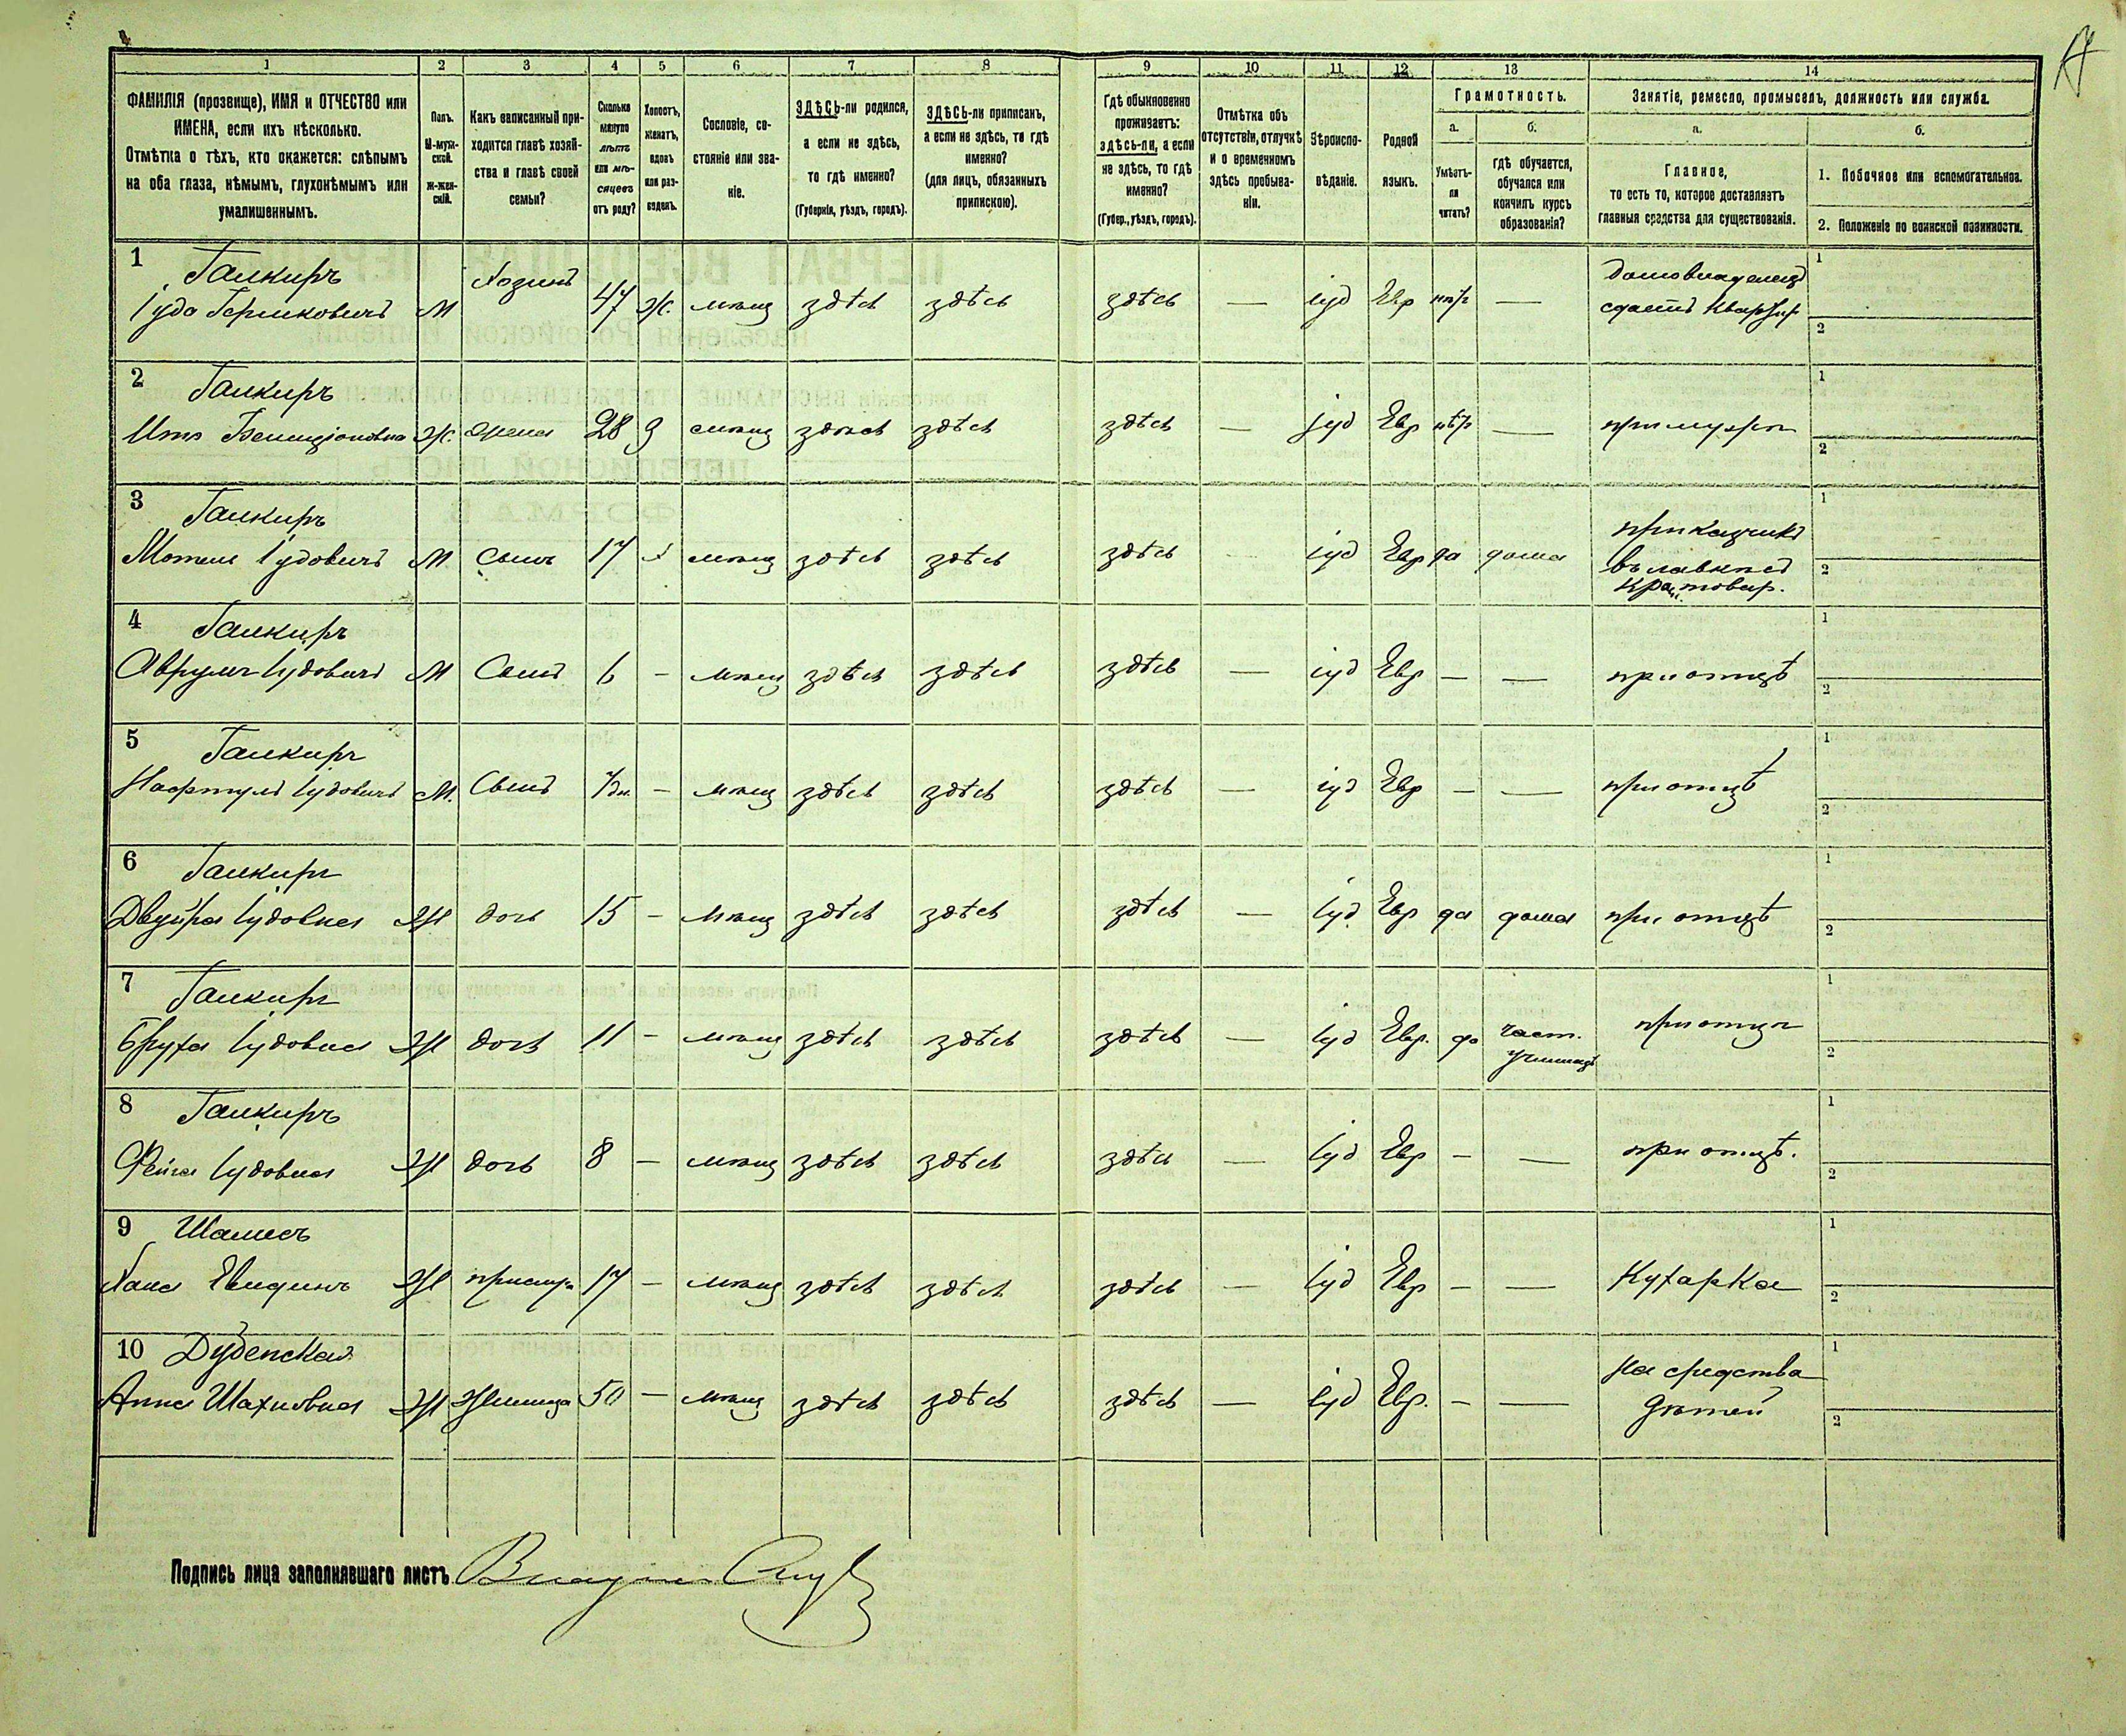 1 2 3 4 5 6 7 8 9 10 11 12 13 14
ФАМИЛІЯ (прозвище), ИМЯ и ОТЧЕСТВО или
ИМЕНА, если ихъ нѣсколько.
Отмѣтка о тѣхъ, кто окажется: слѣпымъ
на оба глаза, нѣмымъ, глухонѣмымъ или
умалишеннымъ.
Полъ.
М-муж-
ской.
Ж-жен-
скій.
Какъ записанный при-
ходится главѣ хозяй-
ства и главѣ своей
семьи?
Сколько
минуло
лѣтъ
или мѣ-
сяцевъ
отъ роду?
Холостъ,
женатъ,
вдовъ
или раз-
веденъ.
Сословіе, со-
стояніе или зва-
ніе.
ЗДѢСЬ-ли родился,
а если не здѣсь,
то гдѣ именно?
(Губернія, уѣздъ, городъ).
ЗДѢСЬ-ли приписанъ,
а если не здѣсь, то гдѣ
именно?
(для лицъ, обязанныхъ
припискою).
Гдѣ обыкновенно
проживаетъ:
здѣсь-ли, а если
не здѣсь, то гдѣ
именно?
(Губер., уѣздъ, городъ).
Отмѣтка объ
отсутствіи, отлучкѣ
и о временномъ
здѣсь пребыва-
ніи.
Вѣроиспо-
вѣданіе.
Родной
языкъ.
Грамотность.
а.
Умѣетъ-
ли
читать?
б.
гдѣ обучается,
обучался или
кончилъ курсъ
образованія?
Занятіе, ремесло, промыселъ, должность или служба.
а.
Главное,
то есть то, которое доставляетъ
главныя средства для существованія.
б.
1. Побочное или вспомогательное.
2. Положеніе по воинской повинности.
1 Галкиръ
Іуда Гершковичъ М Хозяинъ 47 ж. мѣщ здѣсь здѣсь здѣсь — іуд Евр — домовладелецъ
сдаетъ квартир
1
2
2 Галкиръ
Ж. жена 28 мѣщ здѣсь здѣсь здѣсь — іуд Евр — при мужѣ
1
2
3 Галкиръ
Мотель Іудовичъ М Сынъ 17 х мѣщ здѣсь здѣсь здѣсь іуд Евр да дома прикащикъ
въ лавкѣ
товар.
1
2
4 Галкиръ
Аврумъ Іудовичъ М Сынъ 6 — мѣщ здѣсь здѣсь здѣсь — іуд Евр — — при отцѣ
1
2
5 Галкиръ
Нафтулъ Іудовичъ М. Сынъ — мѣщ здѣсь здѣсь здѣсь — іуд Евр — — при отцѣ
1
2
6 Галкиръ
Двойра Іудовна Ж дочь 15 — мѣщ здѣсь здѣсь здѣсь — іуд Евр да дома при отцѣ
1
2
7 Галкиръ
Бруха Іудовна Ж дочь 11 — мѣщ здѣсь здѣсь здѣсь — іуд Евр. да част.
училищ при отцѣ
1
2
8 Галкиръ
Фейга Іудовна Ж дочь 8 — мѣщ здѣсь здѣсь здѣсь — іуд Евр — — при отцѣ.
1
2
9 Шамесъ
Хана Ж прислуга 17 — мѣщ здѣсь здѣсь здѣсь — іуд Евр — — Кухарка
1
2
10
Анна Шахновна Ж Жилица 50 — мѣщ здѣсь здѣсь здѣсь — іуд Евр. — — на средства
дѣтей
1
2
Подпись лица заполнявшаго листъ